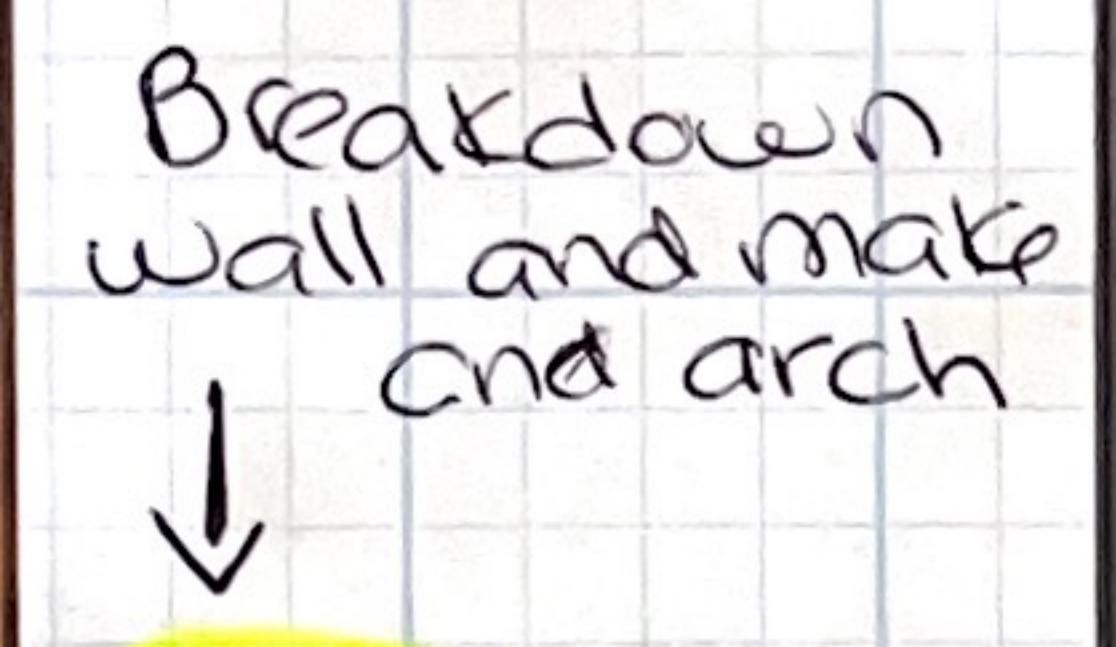 Breakdown
wall and make
and arch